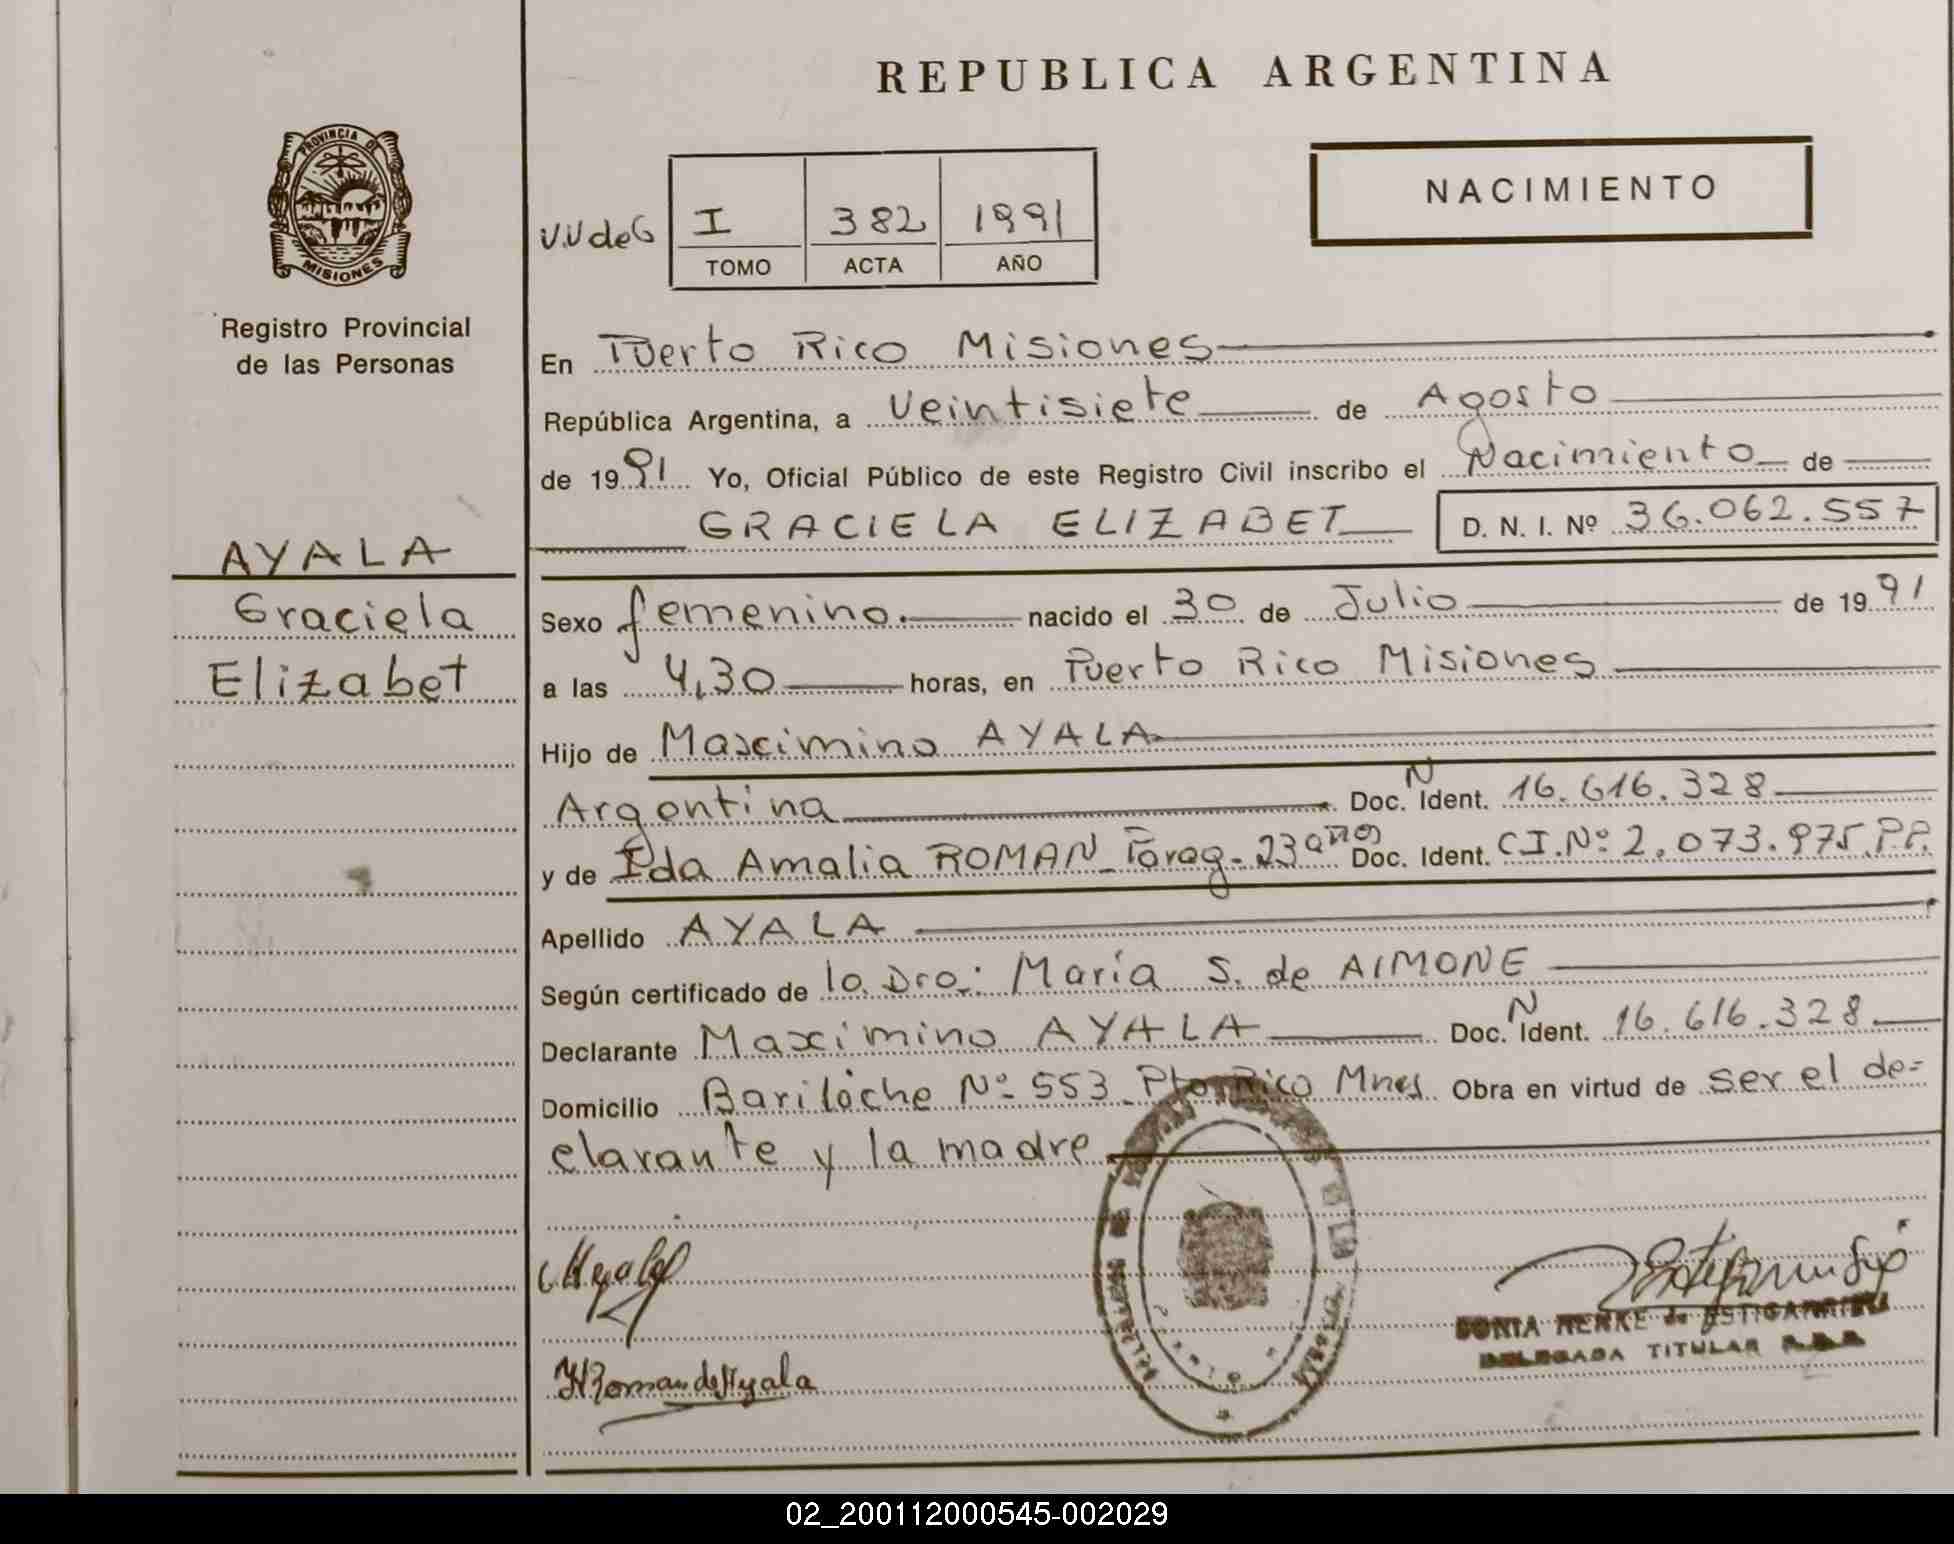 REPUBLICA ARGENTINA
PROVINCIA D
MISIONES
Registro Provincial
de las Personas
NACIMIENTO
V.V de G
I 382 1991
TOMO ACTA AÑO
En Puerto Rico Misiones
República Argentina, a Veintisiete de Agosto
de 1991 Yo, Oficial Público de este Registro Civil inscribo el Nacimiento de
GRACIELA ELIZABET D. N. I. Nº 36.062.557
AYALA
Graciela
Elizabet
Sexo femenino. nacido el 30 de Julio de 1991
a las 4,30 horas, en Puerto Rico Misiones
Hijo de Maximino AYALA
Argentina Doc. N Ident. 16.616.328
y de Ida Amalia ROMAN - Parag - 23 años Doc. Ident. CI.Nº 2.073.975.P.P.
Apellido AYALA
Según certificado de la Dra.: María S. de AIMONE
Declarante Maximino AYALA Doc. N Ident. 16.616.328
Domicilio Bariloche Nº 553 - Pto Rico Mnes Obra en virtud de ser el de=
clarante y la madre
Roman de Ayala
SONIA HENKE de ESTIGARRIBIA
DELEGADA TITULAR
02_200112000545-002029